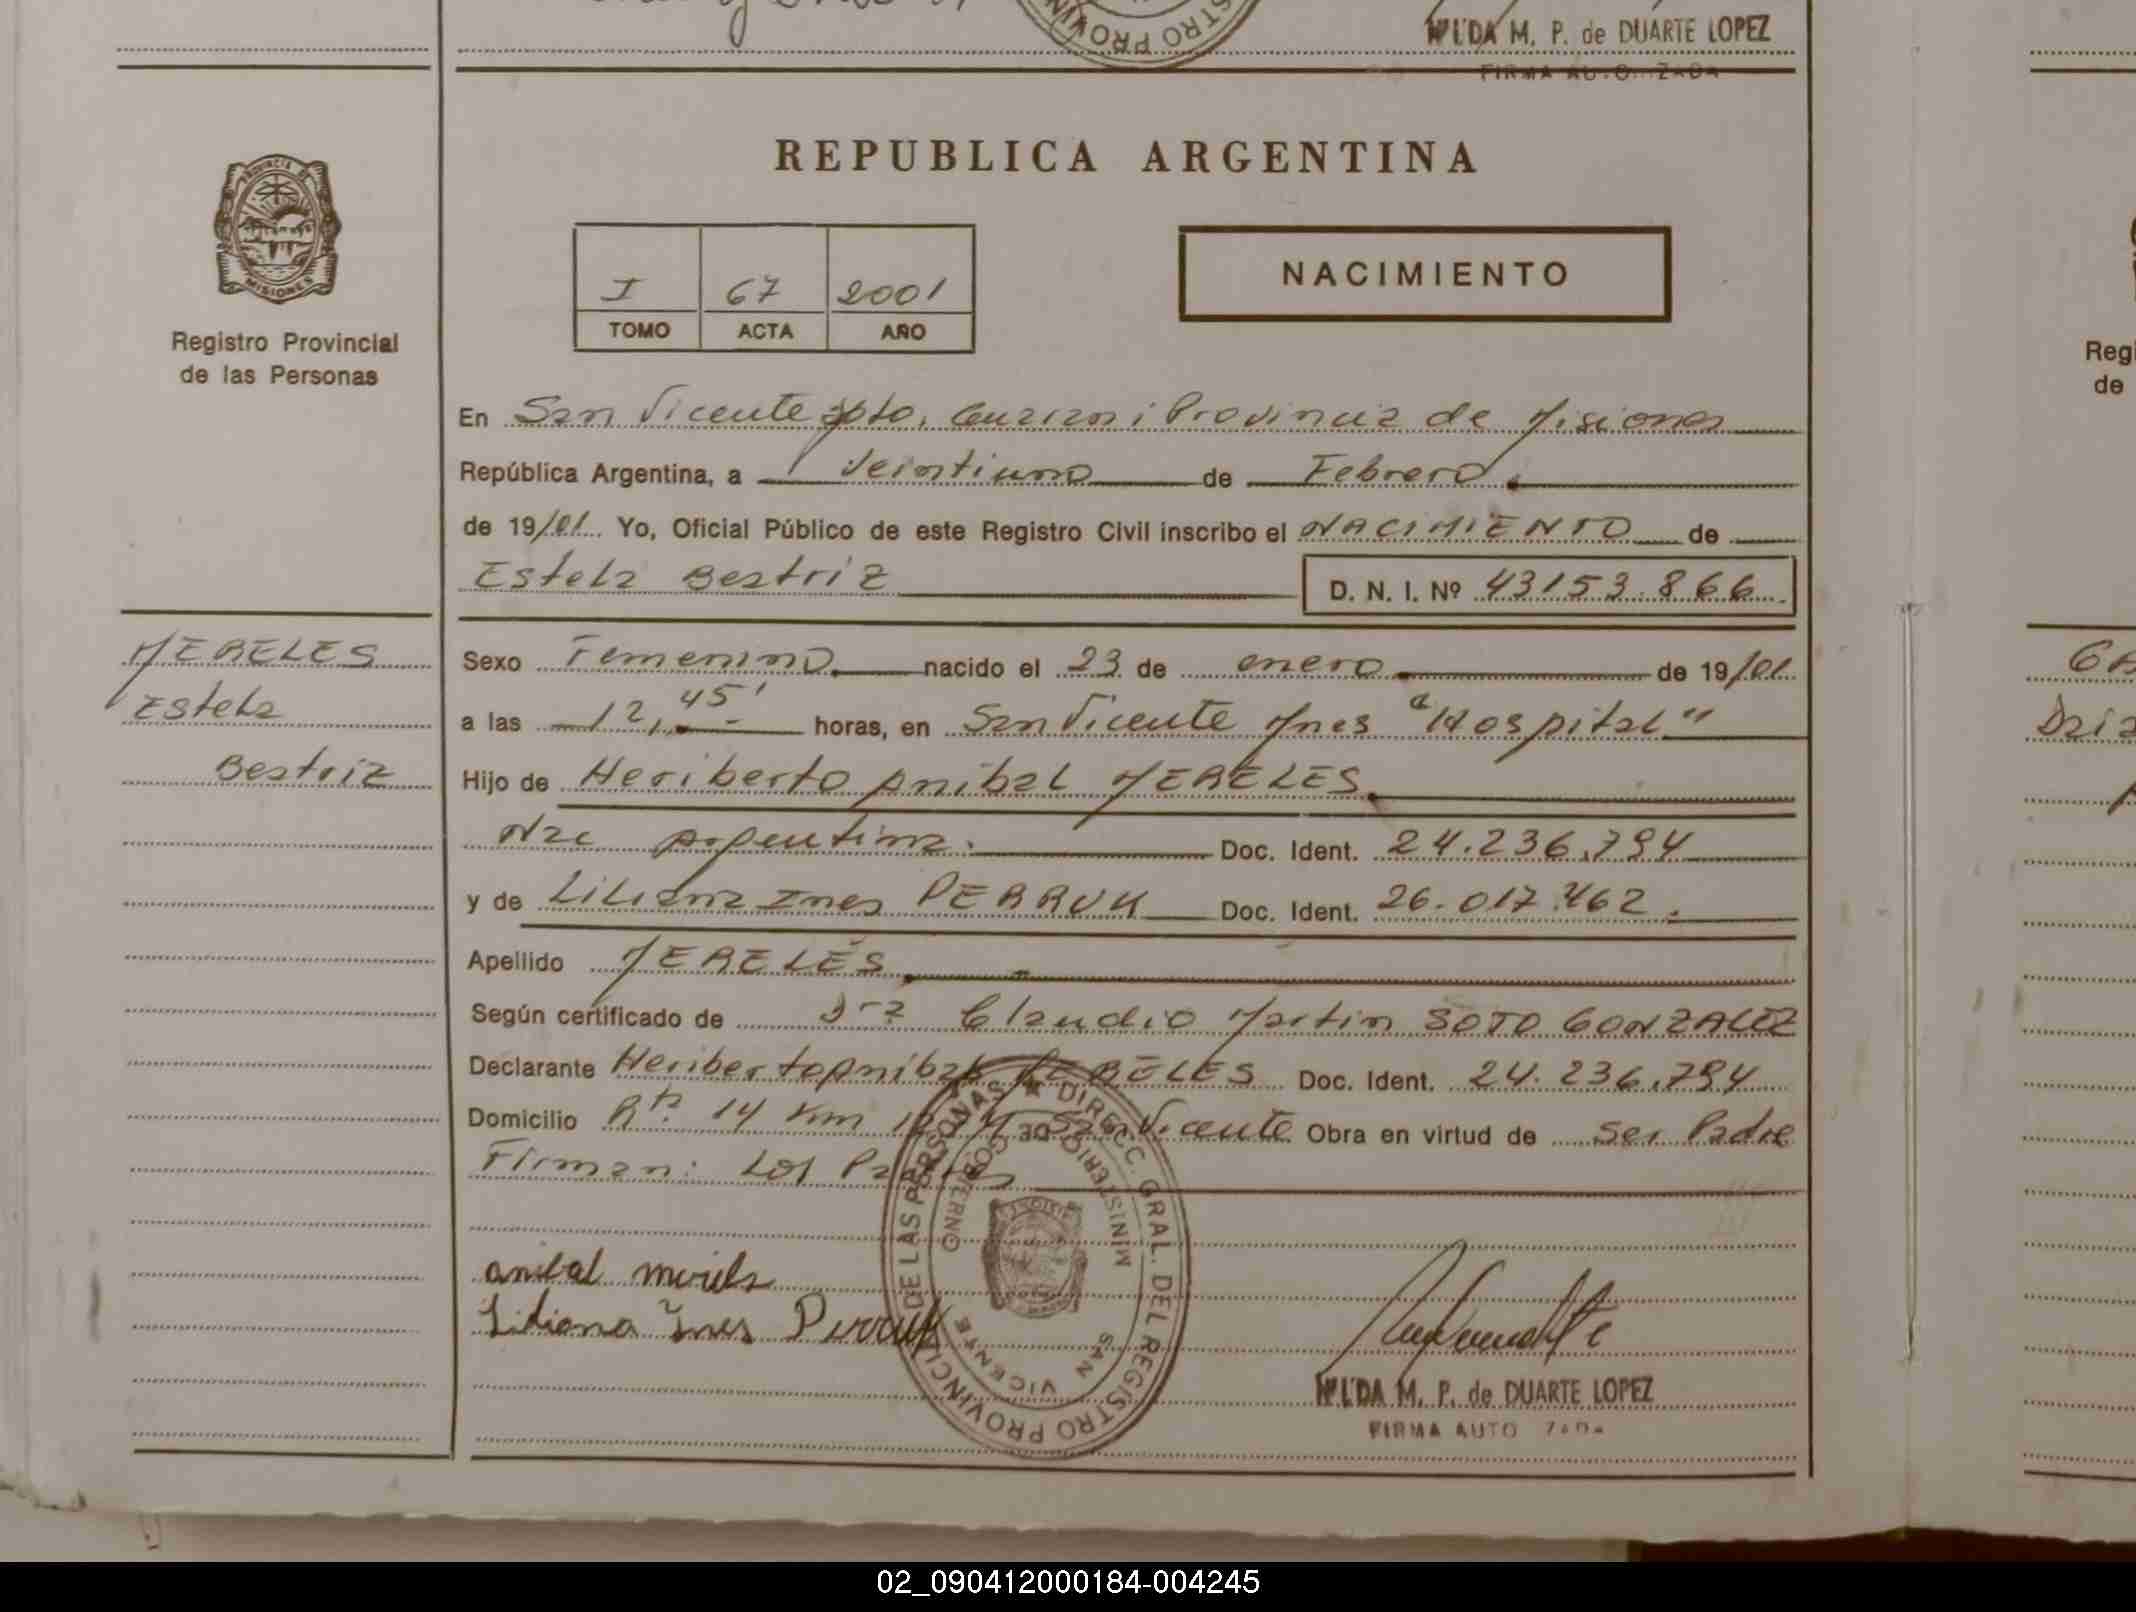 HILDA M. P. de DUARTE LOPEZ
FIRMA AUTORIZADA
PROVINCIA DE
MISIONES
Registro Provincial
de las Personas
REPUBLICA ARGENTINA
I 67 2001
TOMO ACTA AÑO
NACIMIENTO
En San Vicente Dpto. Guarani Provincia de Misiones
República Argentina, a Veintiuno de Febrero
de 19/01 Yo, Oficial Público de este Registro Civil inscribo el NACIMIENTO de
Estela Beatriz D. N. I. Nº 43153.866
MERELES
Estela
Beatriz
Sexo Femenino nacido el 23 de enero de 19/01
a las 12,45' horas, en San Vicente Mnes "Hospital"
Hijo de Heriberto Anibal MERELES
Nac Argentina. Doc. Ident. 24.236.794
y de Liliana Ines PERRUK Doc. Ident. 26.017.462.
Apellido MERELES
Según certificado de Claudio Martin SOTO GONZALEZ
Declarante Heriberto Anibal MERELES Doc. Ident. 24.236.794
Domicilio Rta 14 Km San Vicente Obra en virtud de ser Padre
Firman: Los Padres
anibal mereles
Liliana Ines Perruk
DIRECC. GRAL. DEL REGISTRO PROVINCIAL DE LAS PERSONAS
MINISTERIO GOBIERNO
30
SAN VICENTE
HILDA M. P. de DUARTE LOPEZ
FIRMA AUTORIZADA
Regi
de
02_090412000184-004245